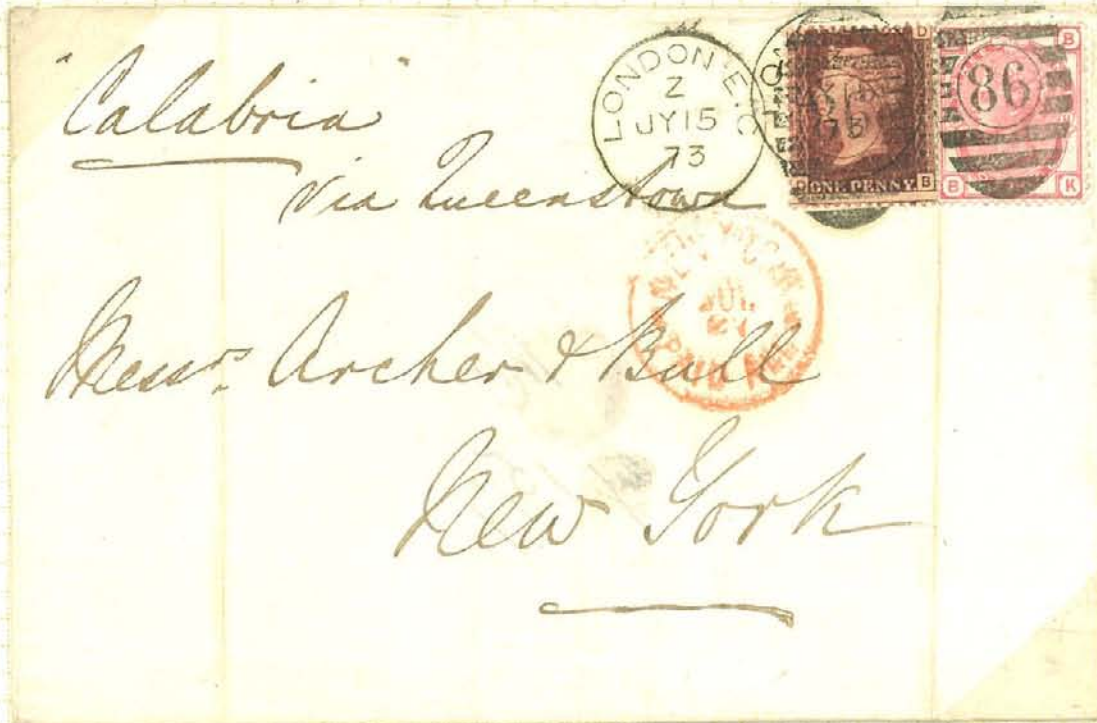 "Calabria"
via Queenstown
LONDON E.C
Z
JY 15
73
86
D
B
D ONE PENNY B
B K
NEW YORK
JUL
PAID ALL
Messrs. Archer & Bull
New York